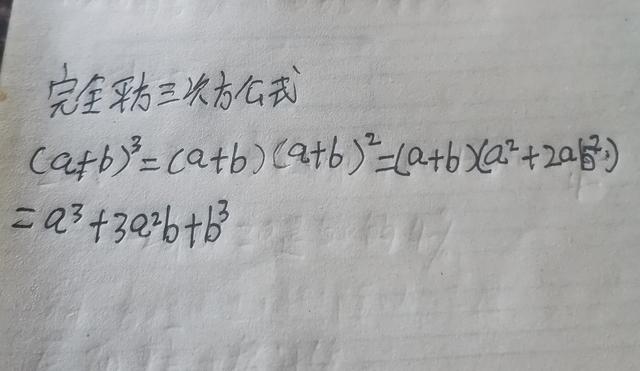 完全平方三次方公式
(a+b)³=(a+b)(a+b)²=(a+b)(a²+2ab²)
=a³+3a²b+b³